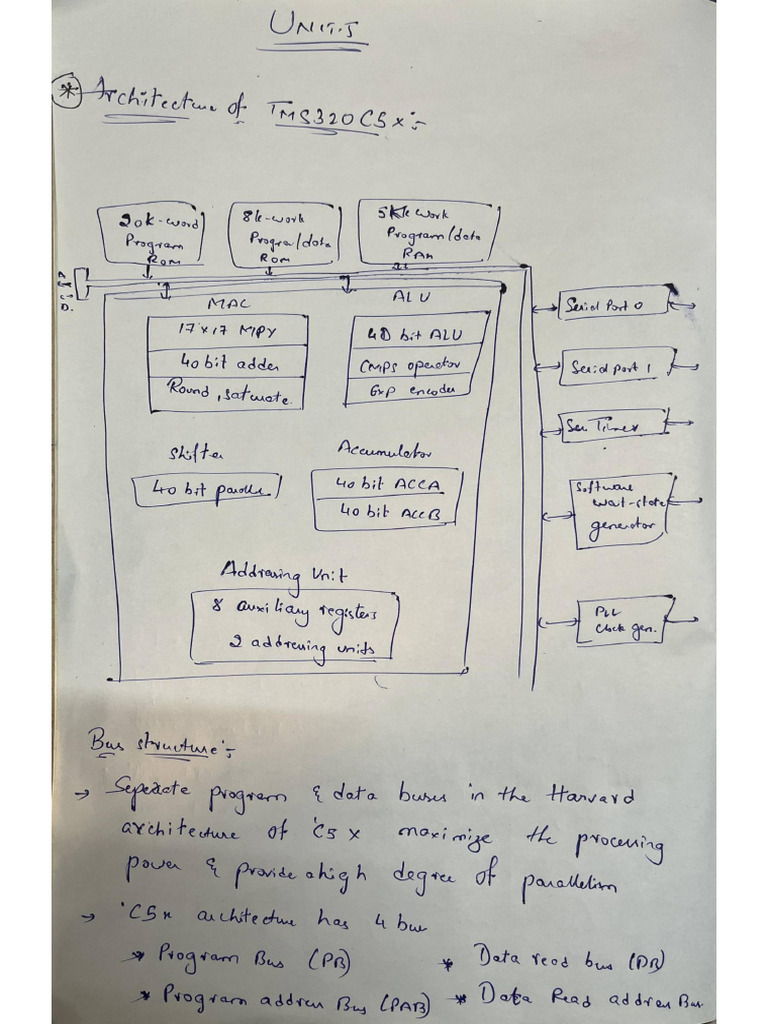 UNIT-5
* Architecture of TMS320C5x:-
20k-word
Program
ROM
8k-work
Progra/data
ROM
5Kk work
Program/data
RAM
MAC
17x17 MPY
40 bit adder
Round, saturate.
ALU
40 bit ALU
CMPS operator
Exp encoder
Shifter
40 bit parallel
Accumulator
40 bit ACCA
40 bit ACCB
Addressing Unit
8 auxiliary registers
2 addressing units
Serial Port 0
Serial port 1
Timer
Software
wait-state
generator
PLL
clock gen.
Bus structure:-
→ Seperate program & data buses in the Harvard
architecture of 'C5x maximize the processing
power & provide a high degree of parallelism
→ 'C5x architecture has 4 bus
* Program Bus (PB) * Data read bus (DB)
* Program address Bus (PAB) * Data Read address Bus